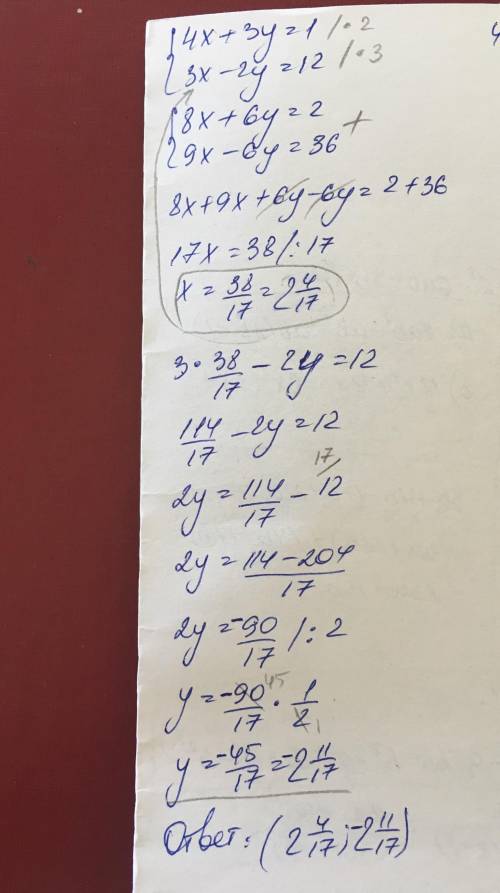 {4x + 3y = 1 / · 2
{3x − 2y = 12 / · 3
{8x + 6y = 2 +
{9x − 6y = 36
8x + 9x + 6y − 6y = 2 + 36
17x = 38 / : 17
x = 38/17 = 2 4/17
3 · 38/17 − 2y = 12
114/17 − 2y = 12
2y = 114/17 − 12 17/
2y = (114 − 204)/17
2y = −90/17 / : 2
y = −90/17 45 · 1/2 1
y = −45/17 = −2 11/17
Ответ: (2 4/17; −2 11/17)